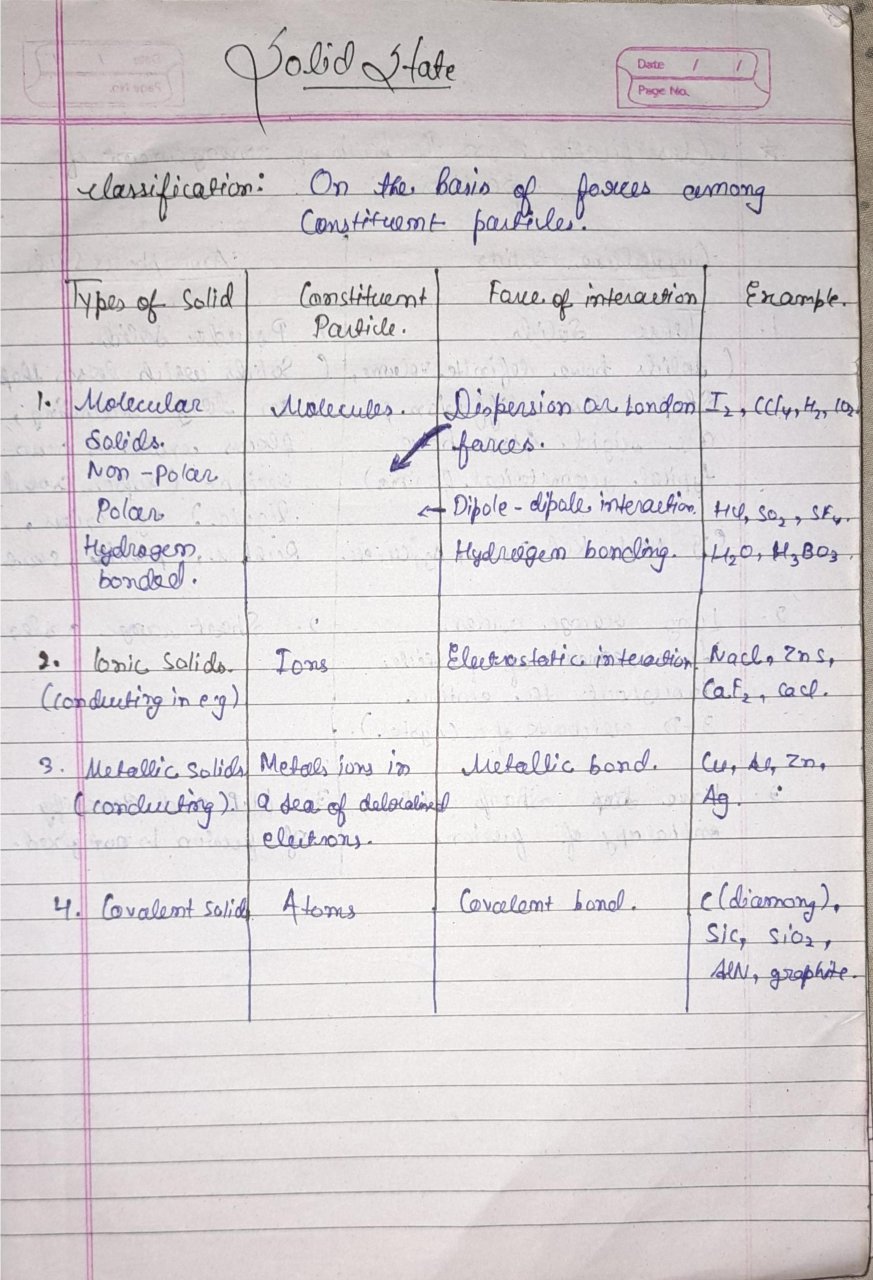 Solid State
Date / /
Page No.
Classification: On the Basis of forces among
Constituent particles.
Types of Solid Constituent Force of interaction Example.
Particle.
1. Molecular Molecules. Dispersion or London I₂, CCl₄, H₂,
Solids. forces.
Non-Polar
Polar ← Dipole-dipole interaction. HCl, SO₂, SF₄.
Hydrogen Hydrogen bonding. H₂O, H₃BO₃
bonded.
2. Ionic Solids. Ions Electrostatic interaction NaCl, ZnS,
(conducting in CaF₂, CaCl.
3. Metallic Solids Metals ions in Metallic bond. Cu, Al, Zn,
(conducting). a sea of delocalined Ag.
electrons.
4. Covalent Solid Atoms Covalent bond. C(diamong),
SiC, SiO₂,
AlN, graphite.